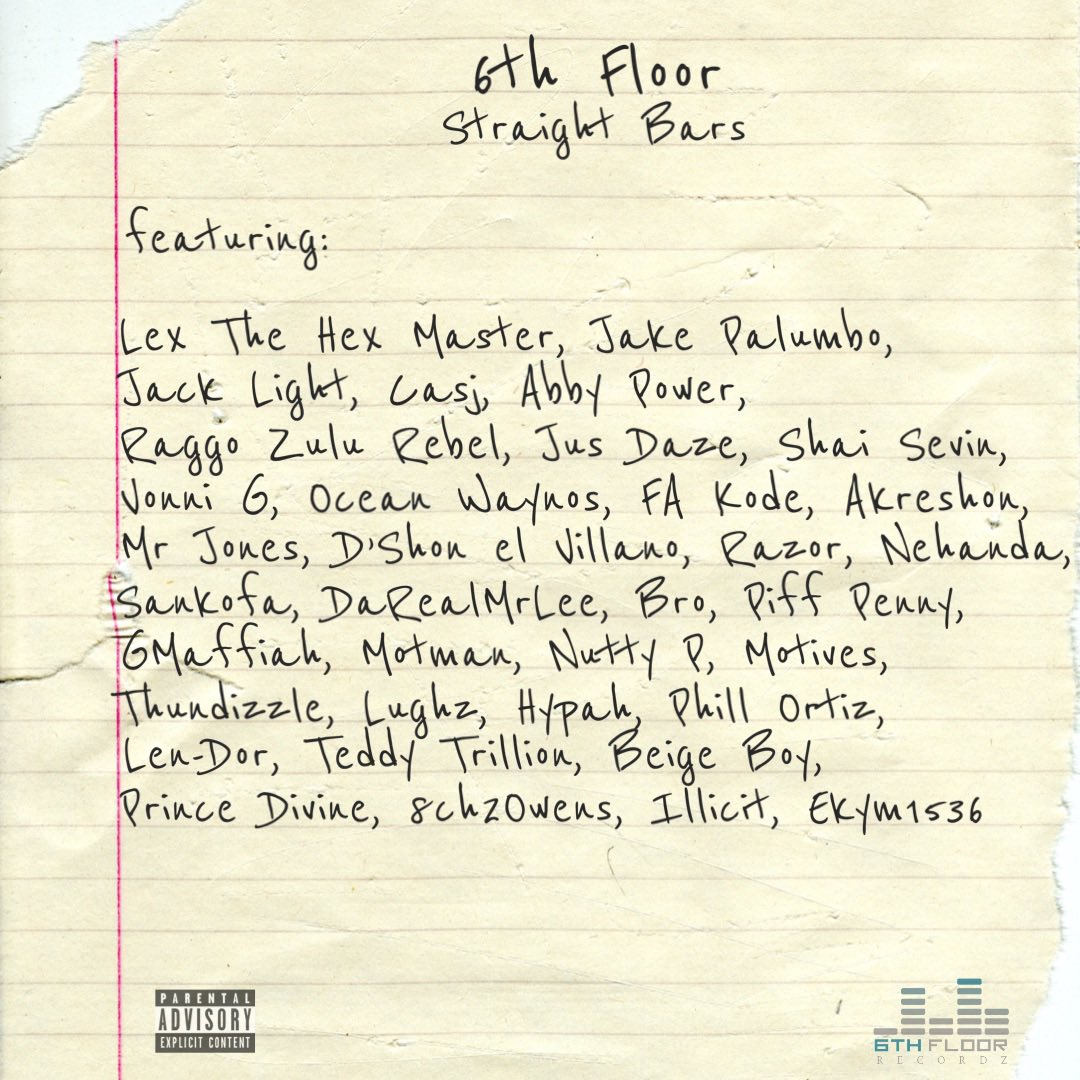 6th Floor
Straight Bars
featuring:
Lex The Hex Master, Jake Palumbo,
Jack Light, Casj, Abby Power,
Raggo Zulu Rebel, Jus Daze, Shai Sevin,
Vonni G, Ocean Waynos, FA Kode, Akreshon,
Mr Jones, D'Shon el Villano, Razor, Nehanda,
Sankofa, DaRealMrLee, Bro, Piff Penny,
GMaffiah, Motman, Nutty P, Motives,
Thundizzle, Lughz, Hypah, Phill Ortiz,
Len-Dor, Teddy Trillion, Beige Boy,
Prince Divine, 8chzOwens, Illicit, Ekym1536
PARENTAL
ADVISORY
EXPLICIT CONTENT
6TH FLOOR
RECORDZ